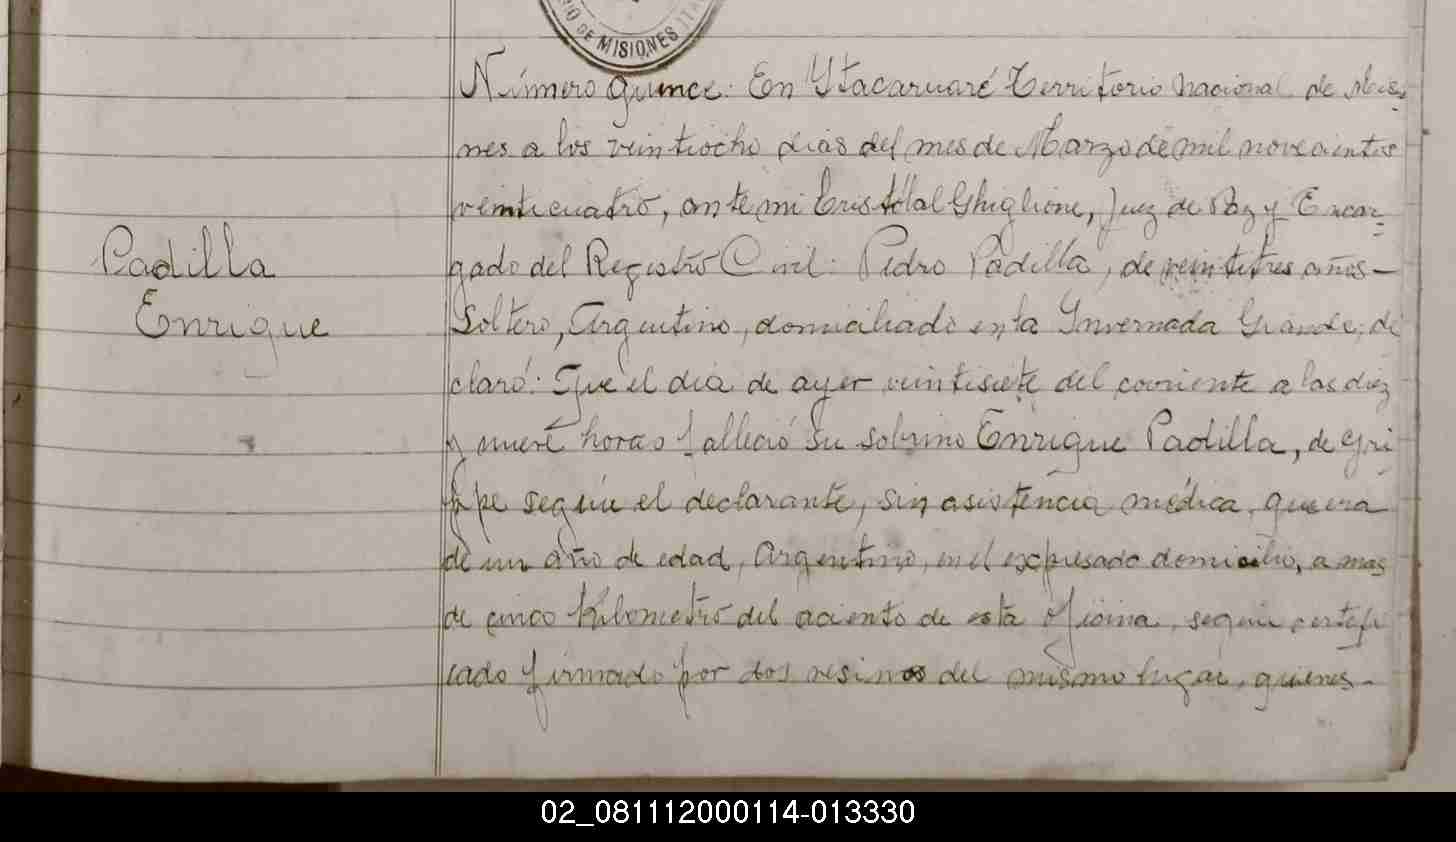 RIO DE MISIONES
Número Quince: En Ytacaruaré Territorio Nacional de Misio=
nes a los veintiocho dias del mes de Marzo de mil novecientos
veinticuatro, ante mi Cristóbal Ghiglione, Juez de Paz y Encar=
Padilla
gado del Registro Civil: Pedro Padilla, de veintitres años-
Enrique
Soltero, Argentino, domiciliado en la Invernada Grande; de
claró: Que el dia de ayer veintisiete del corriente a las diez
y nueve horas falleció su sobrino Enrique Padilla, de gri
pe según el declarante, sin asistencia médica, que era
de un año de edad, Argentino, en el expresado domicilio, a mas
de cinco kilometró del aciento de esta oficina, según certifi
cado firmado por dos vesinos del mismo lugar, quienes-
02_081112000114-013330